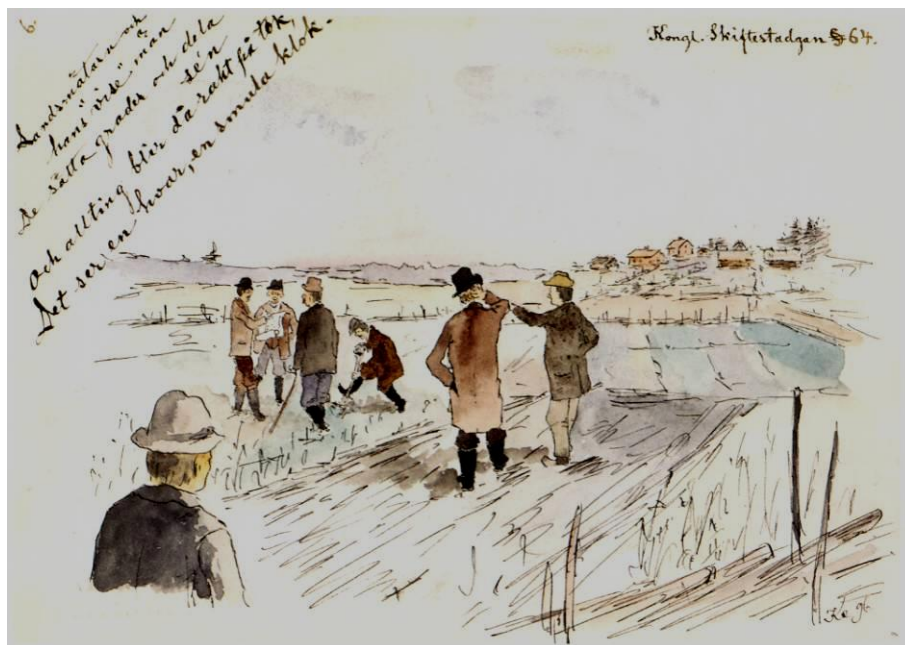 6.
Landtmätarn och
hans "vise" män
De sätta grader och dela
sen
Och allting blir då rakt på tok,
Det ser en hvar, en smula klok.
Kongl. Skiftestadgan § 64.